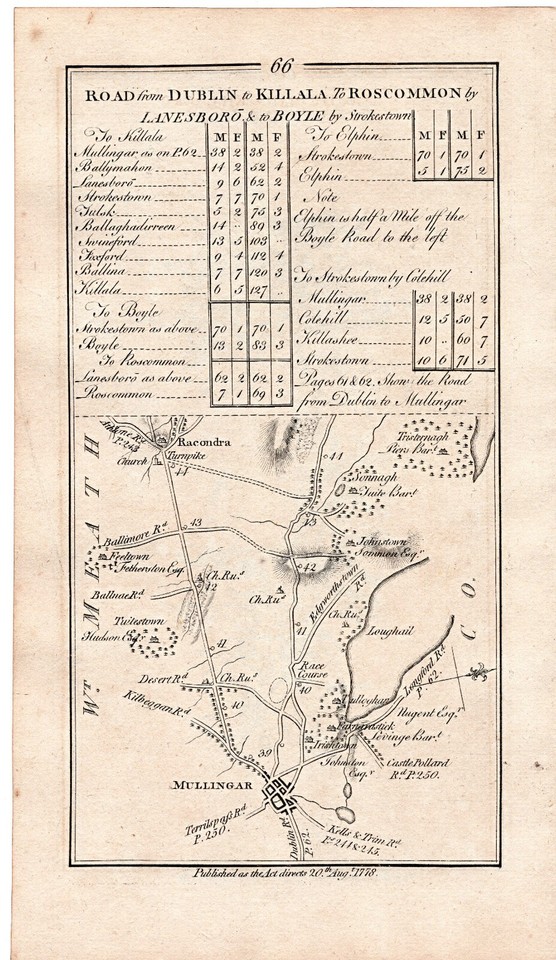 66
ROAD from DUBLIN to KILLALA. To ROSCOMMON by
LANESBORO & to BOYLE by Strokestown
To Killala M F M F
Mullingar as on P.62 38 2 38 2
Ballymahon 14 2 52 4
Lanesboro 9 6 62 2
Strokestown 7 7 70 1
Tulsk 5 2 75 3
Ballaghadirreen 14 .. 89 3
Swineford 13 5 103 ..
Foxford 9 4 112 4
Ballina 7 7 120 3
Killala 6 5 127 ..
To Boyle
Strokestown as above 70 1 70 1
Boyle 13 2 83 3
To Roscommon
Lanesboro as above 62 2 62 2
Roscommon 7 1 69 3
To Elphin M F M F
Strokestown 70 1 70 1
Elphin 5 1 75 2
Note
Elphin is half a Mile off the
Boyle Road to the left
To Strokestown by Colehill
Mullingar 38 2 38 2
Colehill 12 5 50 7
Killashee 10 .. 60 7
Strokestown 10 6 71 5
Pages 61 & 62. Show the Road
from Dublin to Mullingar
Athlone Rd
P.243
Racondra
Church
Turnpike
44
44
Tristernagh
Piers Bart.
Sonnagh
Tuite Bart.
43
43
Ballimore Rd
Johnstown
Esqr
Feeltown
Fetherston Esq.
42
Ch. Ru.s
42
Ballnae Rd
Ch. Ru.s
Edgworthstown
Rd
Tuitestown
Hudson Esqr
Ch. Ru.s
Loughail
41
41
Wt MEATH
CO.
Desert Rd
Ch. Ru.s
Race
Course
40
40
Kilbeggan Rd
Longford Rd
P. 62.
Nugent Esqr
Levinge Bart.
Irishtown
Johnston
Esqr
Castle Pollard
Rd P.250.
39
MULLINGAR
Terrilspass Rd
P.250.
Dublin Rd
P. 62.
Kells & Trim Rd
Ps 241 & 245.
Published as the Act directs 20th Augt. 1778.